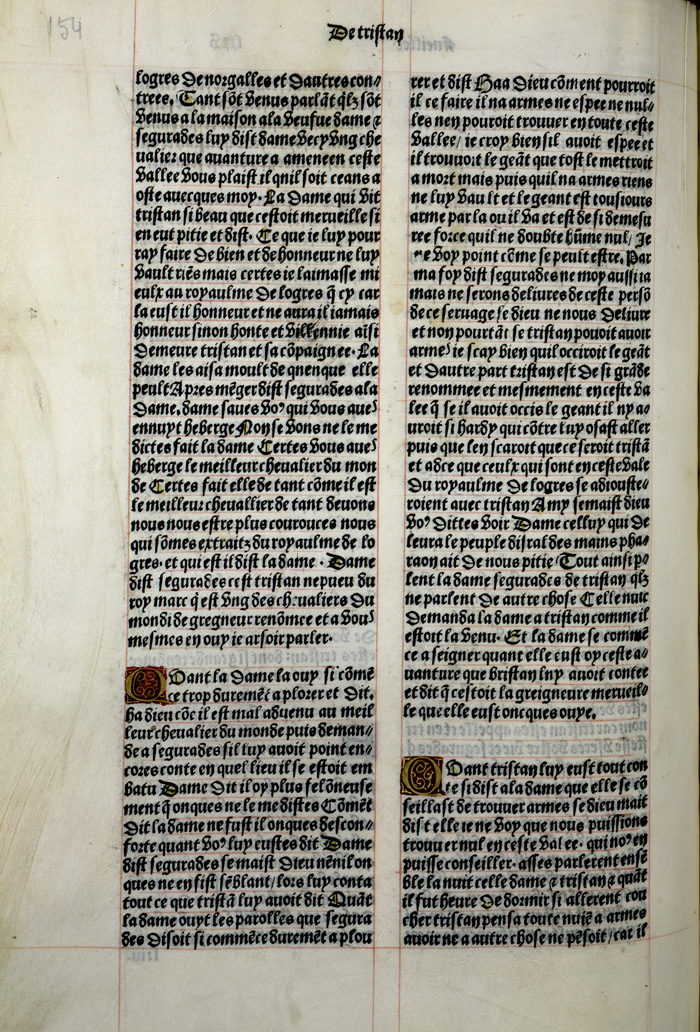 154
De tristan
logres De norgalles et Dautres con-
trees. Tant sõt Venus parlãt q̃lz sõt
Venus a la maison a la Veufue dame ⁊
segurades luy dist dame Vecy Vng che
ualier que auanture a amene en ceste
Vallee Vous plaist il qnil soit ceans a
oste auecques moy. La Dame qui Vit
tristan si beau que cestoit merueille si
en eut pitie et dist. Ce que ie luy pour
ray faire De bien et de honneur ne luy
Vault riẽs mais certes ie laimasse mi
eulx au royaulme De logres q̃ cy car
la eust il honneur et ne aura il iamais
honneur sinon honte et Villennie aĩsi
Demeure tristan et sa cõpaignee. La
dame les aisa moult de qnenque elle
peult Apres mẽger dist segurades a la
Dame. dame saues Vo⁹ qui Vous aues
ennuyt heberge Non se Vons ne le me
dictes fait la dame Certes Vous aues
heberge le meilleur cheualier du mon
de Certes fait elle de tant cõme il est
le meilleur cheuallier de tant deuons
nous nous estre plus courouces nous
qui sõmes extraitz du royaulme de lo
gres. et qui est il dist la dame. Dame
dist segurades cest tristan nepueu du
roy marc q̃ est Vng des cheualiers Du
mondi de gregneur renõmce et a Vous
mesmes en ouy ie arsoir parler.
Quant la Dame la ouy si cõmẽ
ce trop duremẽt a plorer et Dit.
ha dieu cõe il est mal aduenu au meil
leur cheualier du monde puis deman-
de a segurades sil luy auoit point en-
cores conte en quel lieu il se estoit em
batu Dame Dit il oy plus felõneuse
ment q̃ onques ne le me distes Cõmẽt
Dit la dame ne fust il onques descon-
forte quant Vo⁹ luy eustes dit Dame
dist segurades se maist Dieu nẽnil on
ques ne en fist sẽblant/ lors luy conta
tout ce que tristã luy auoit dit Quãt
la dame ouyt les parolles que segura
des Disoit si commẽce duremẽt a plou
rer et dist Haa Dieu cõment pourroit
il ce faire il na armes ne espee ne nul-
les nen pouroit trouuer en toute ceste
Vallee/ ie croy bien sil auoit espee et
il trouuoit le geãt que tost le mettroit
a mort mais puis quil na armes riens
ne luy Vault et le geant est tousiours
arme par la ou il Va et est de si demesu
ree force quil ne doubte hũme nul/ Je
ne Voy point cõme se peult estre. Par
ma foy dist segurades ne moy aussi ia
mais ne serons deliures de ceste persõ
de ce seruage se dieu ne nous Deliure
et non pourtãt se tristan pouoit auoir
armes ie scay bien quil occiroit le geãt
et Dautre part tristan est De si grãde
renommee et mesmement en ceste Va
lee q̃ se il auoit occis le geant il ny a-
uroit si hardy qui cõtre luy osast aller
puis que len scaroit que ce seroit tristã
et adce que ceulx qui sont en ceste Vale
Du royaulme De logres se adiouste-
roient auec tristan Amy semaist dieu
Vo⁹ Dittes Voir Dame celluy qui De
leura le peuple disral des mains pha-
raon ait De nous pitie Tout ainsi p-
lent la dame segurades de tristan q̃lz
ne parlent De autre chose Celle nuit
Demanda la dame a tristan comme il
estoit la Venu. Et la dame se commẽ
ce a seigner quant elle eust oy ceste a-
uanture que bristan luy auort contee
et dit q̃ cestoit la greigneure merueil-
le que elle eust oncques ouye.
Quant tristan luy eust tout con
te si dist a la dame que elle se cõ
seillast de trouuer armes se dieu mait
dist elle ie ne Voy que nous puissions
trouuer nul en ceste Valee. qui no⁹ en
puisse conseiller. asses parlerent ensẽ
ble la nuit celle dame ⁊ tristan ⁊ quãt
il fut heure De dormir si allerent cou
cher tristan pensa toute nuit a armes
auoir ne a autre chose ne pẽsoit/ car il